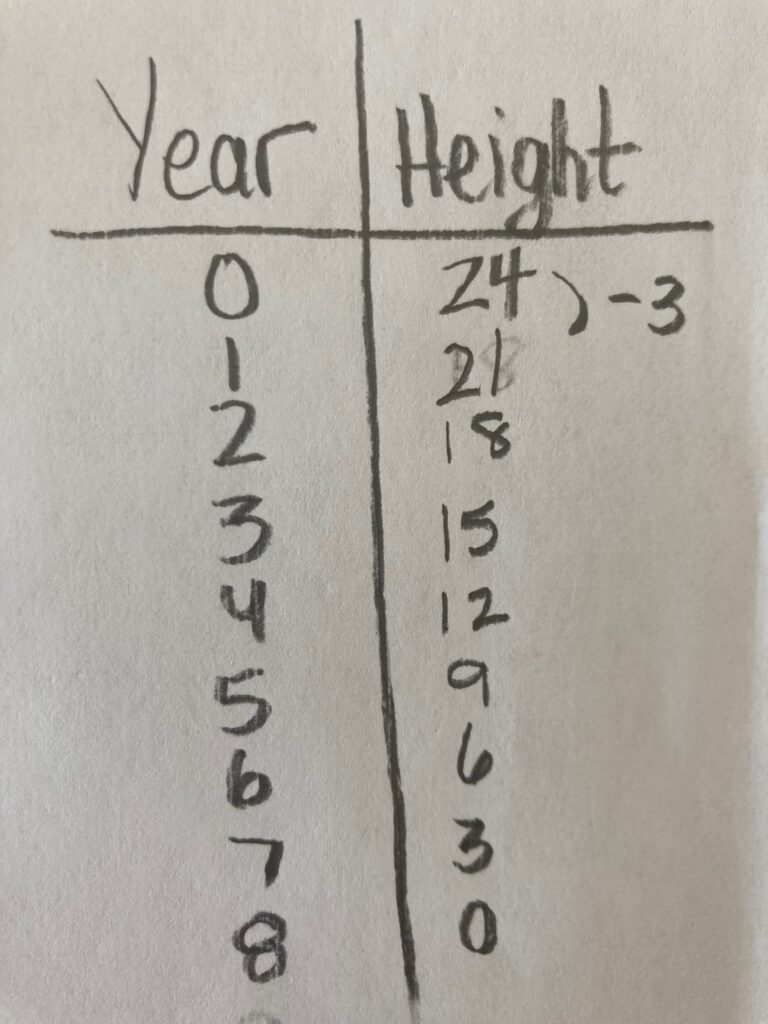 Year Height
0 24 ) -3
1 21
2 18
3 15
4 12
5 9
6 6
7 3
8 0